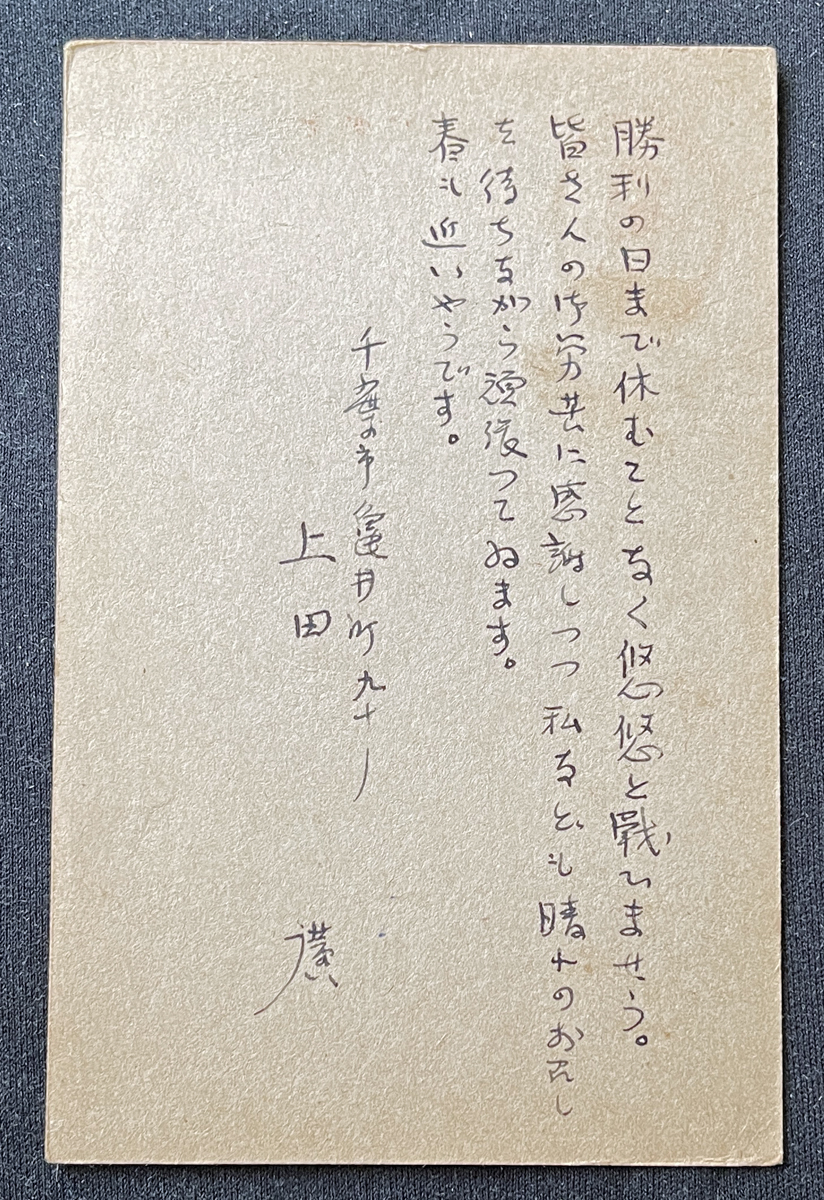 勝利の日まで休むことなく悠悠と戰ひませう。
皆さんの御労苦に感謝しつつ私なども晴れのお召し
を待ちながら頑張つてゐます。
春も近いやうです。
千葉市亀井町九十ノ
上田 廣